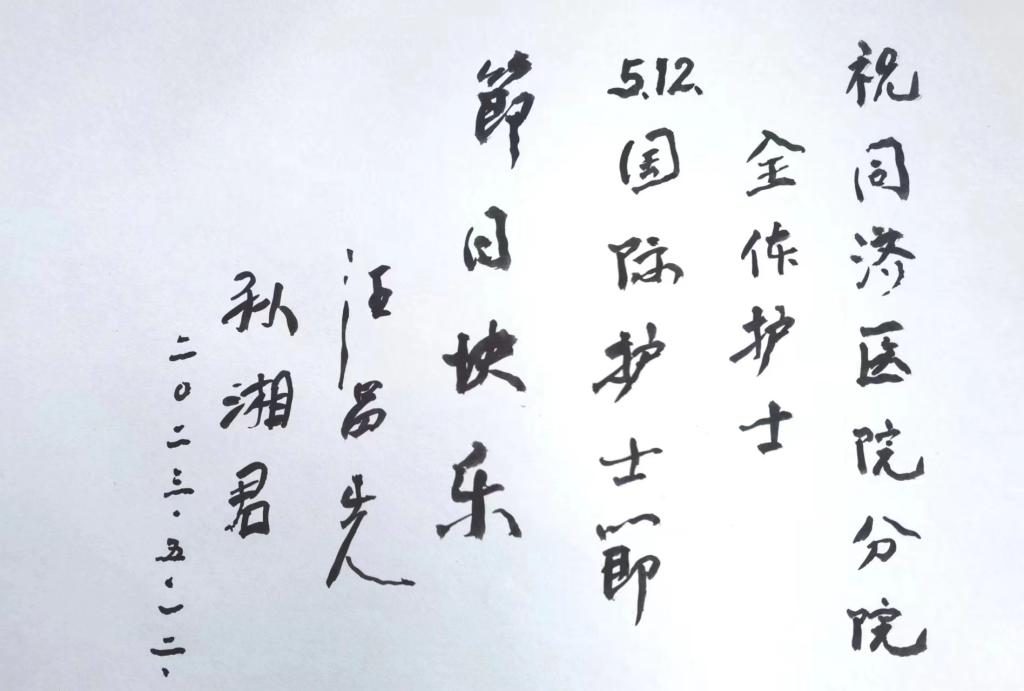 祝同济医院分院
全体护士
5.12.
国际护士節
節日快乐
汪昌先
秋湘君
二〇二三.五.一二.